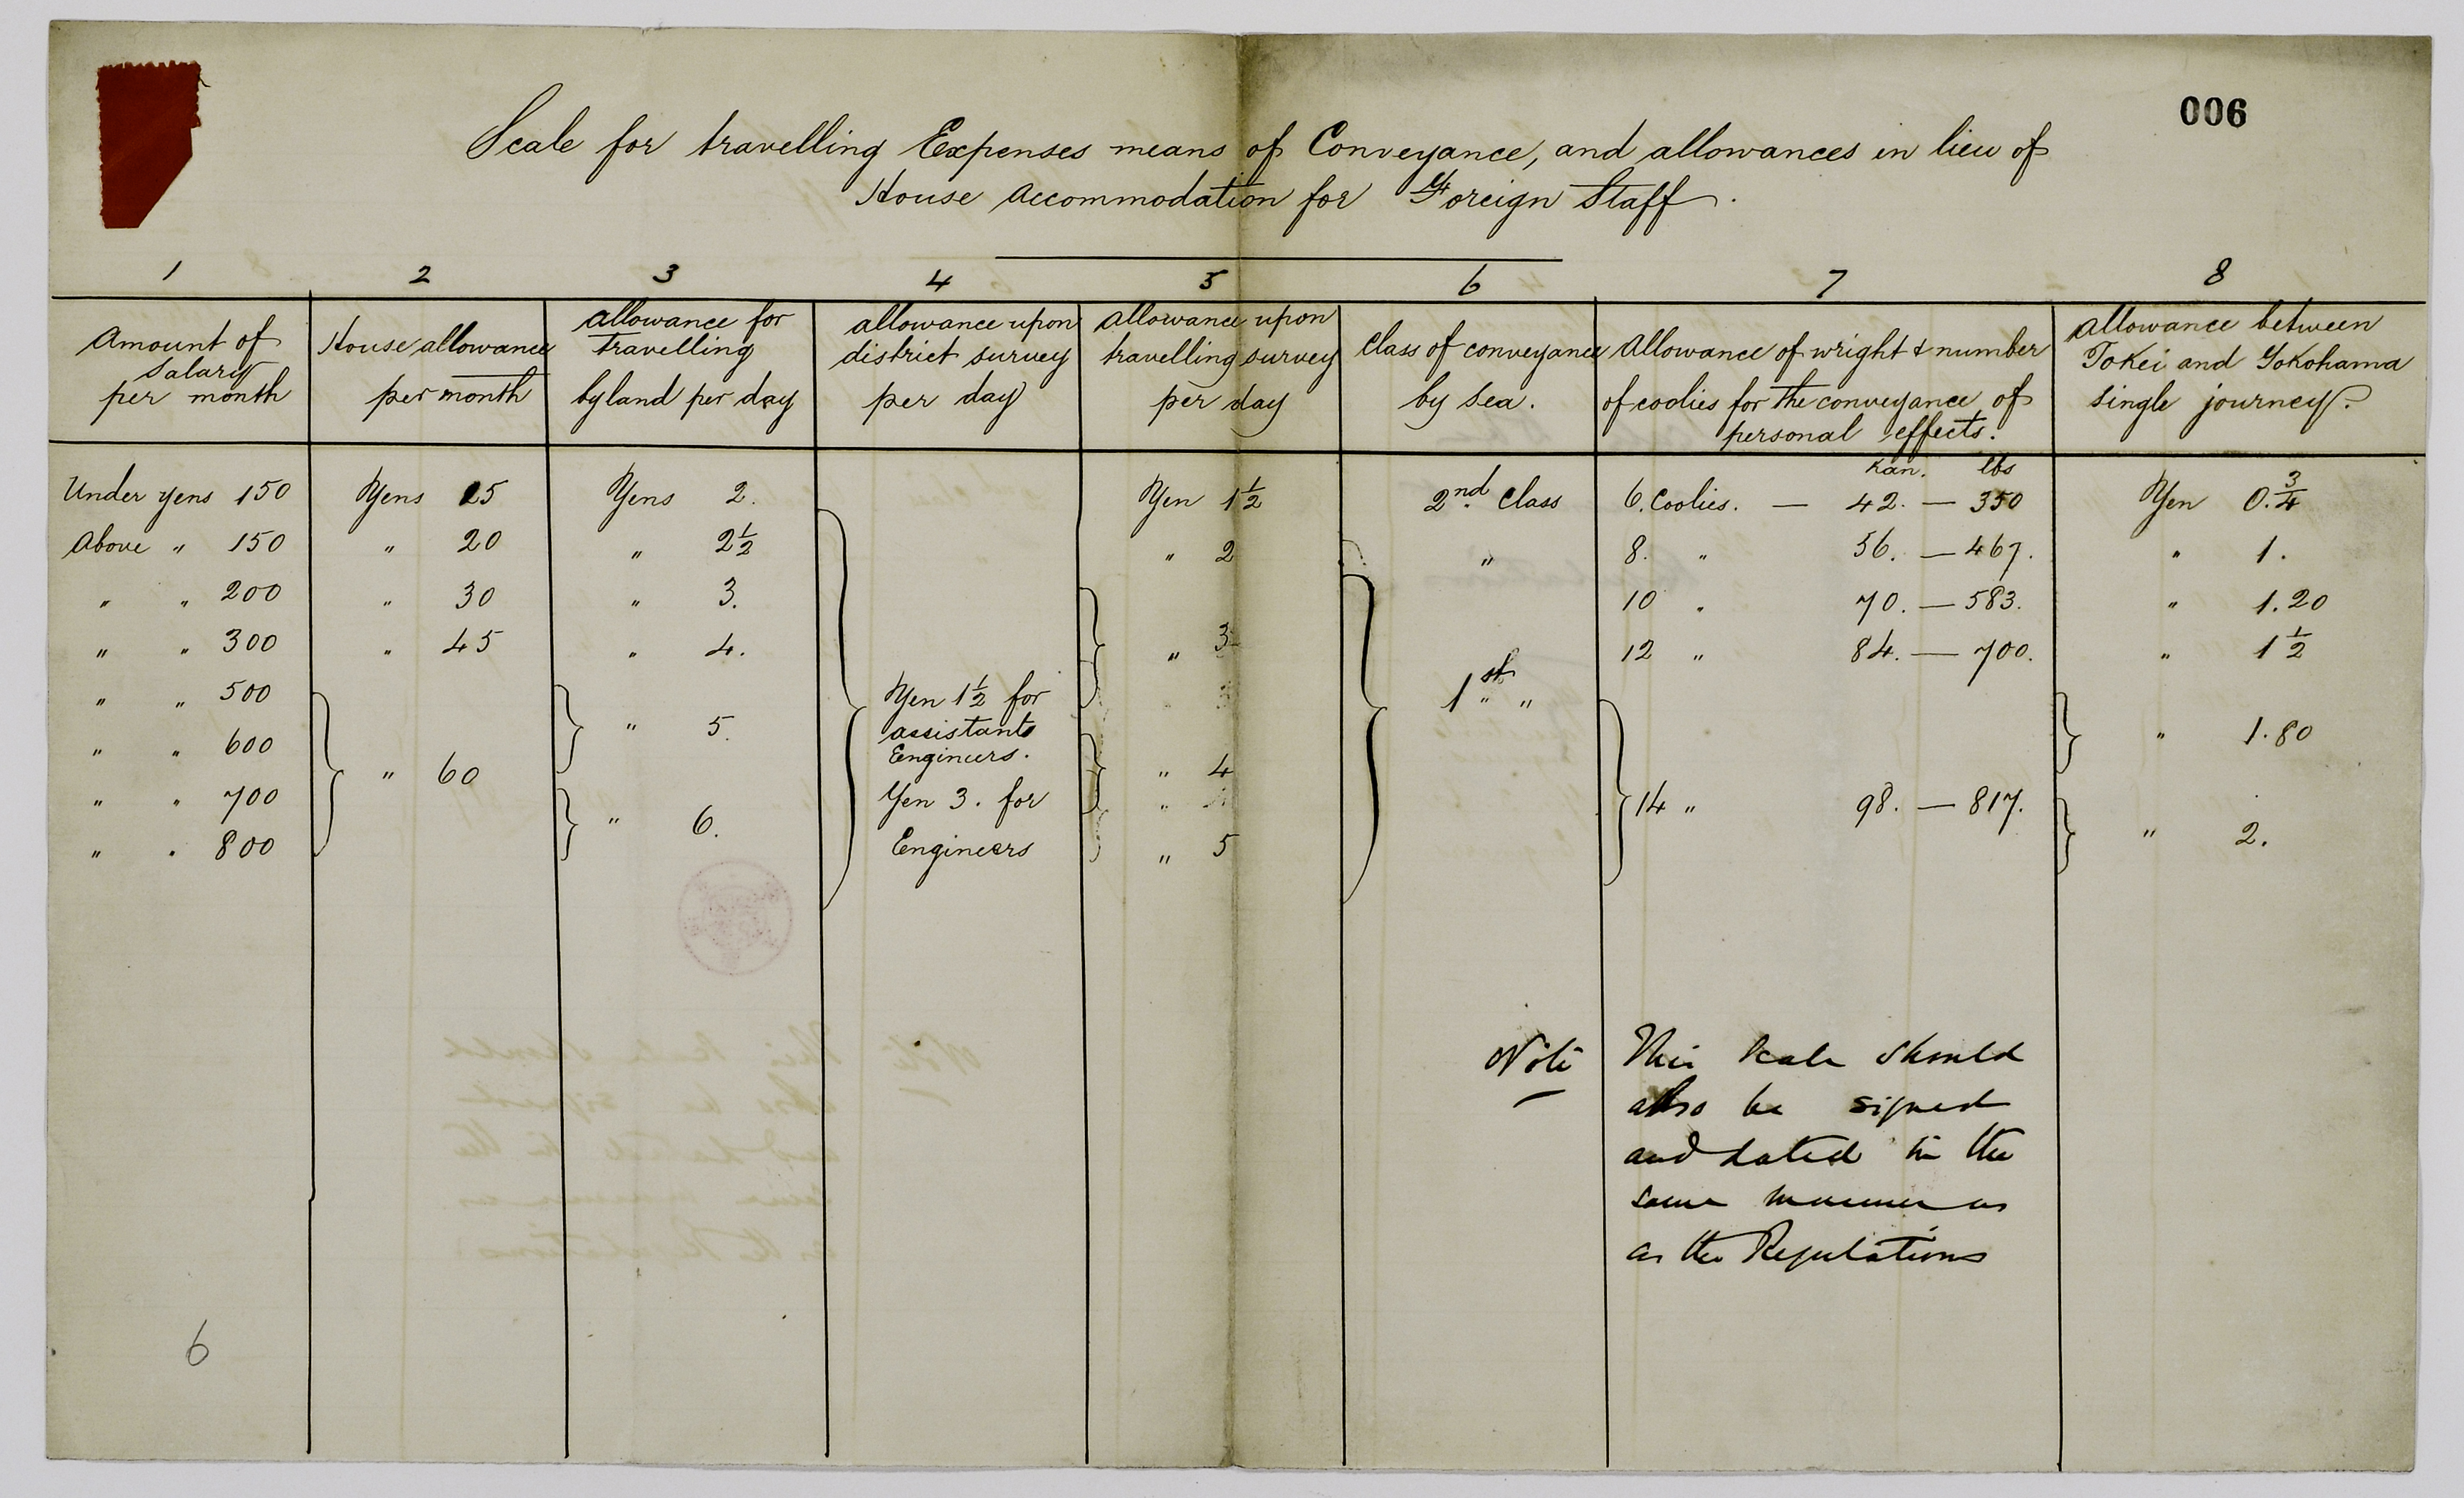 006
Scale for travelling Expenses means of Conveyance, and allowances in lieu of
House accommodation for Foreign Staff.
1 2 3 4 5 6 7 8
Amount of salary per month
House allowance per month
allowance for travelling by land per day
allowance upon district survey per day
allowance upon travelling survey per day
Class of conveyance by sea.
Allowance of wright & number of coolies for the conveyance of personal effects.
Allowance between Tokei and Yokohama single journey.
Kan. lbs
Under yens 150 Yens 15 Yens 2. Yen 1½ 2nd. Class 6. Coolies. — 42. — 350 Yen 0.¾
Above " 150 " 20 " 2½ " 2 " 8. " 56. — 467. " 1.
" " 200 " 30 " 3. 10 " 70. — 583. " 1.20
" " 300 " 45 " 4. " 3 12 " 84. — 700. " 1½
" " 500 " 5. Yen 1½ for 1st " "
assistants
" " 600 Engineers. " 1.80
" 60 " 4
" " 700 " 6. Yen 3. for 14 " 98. — 817.
" " 800 Engineers " 5 " 2.
Note This scale should
also be signed
and dated in the
same manner as
as the Regulations
6